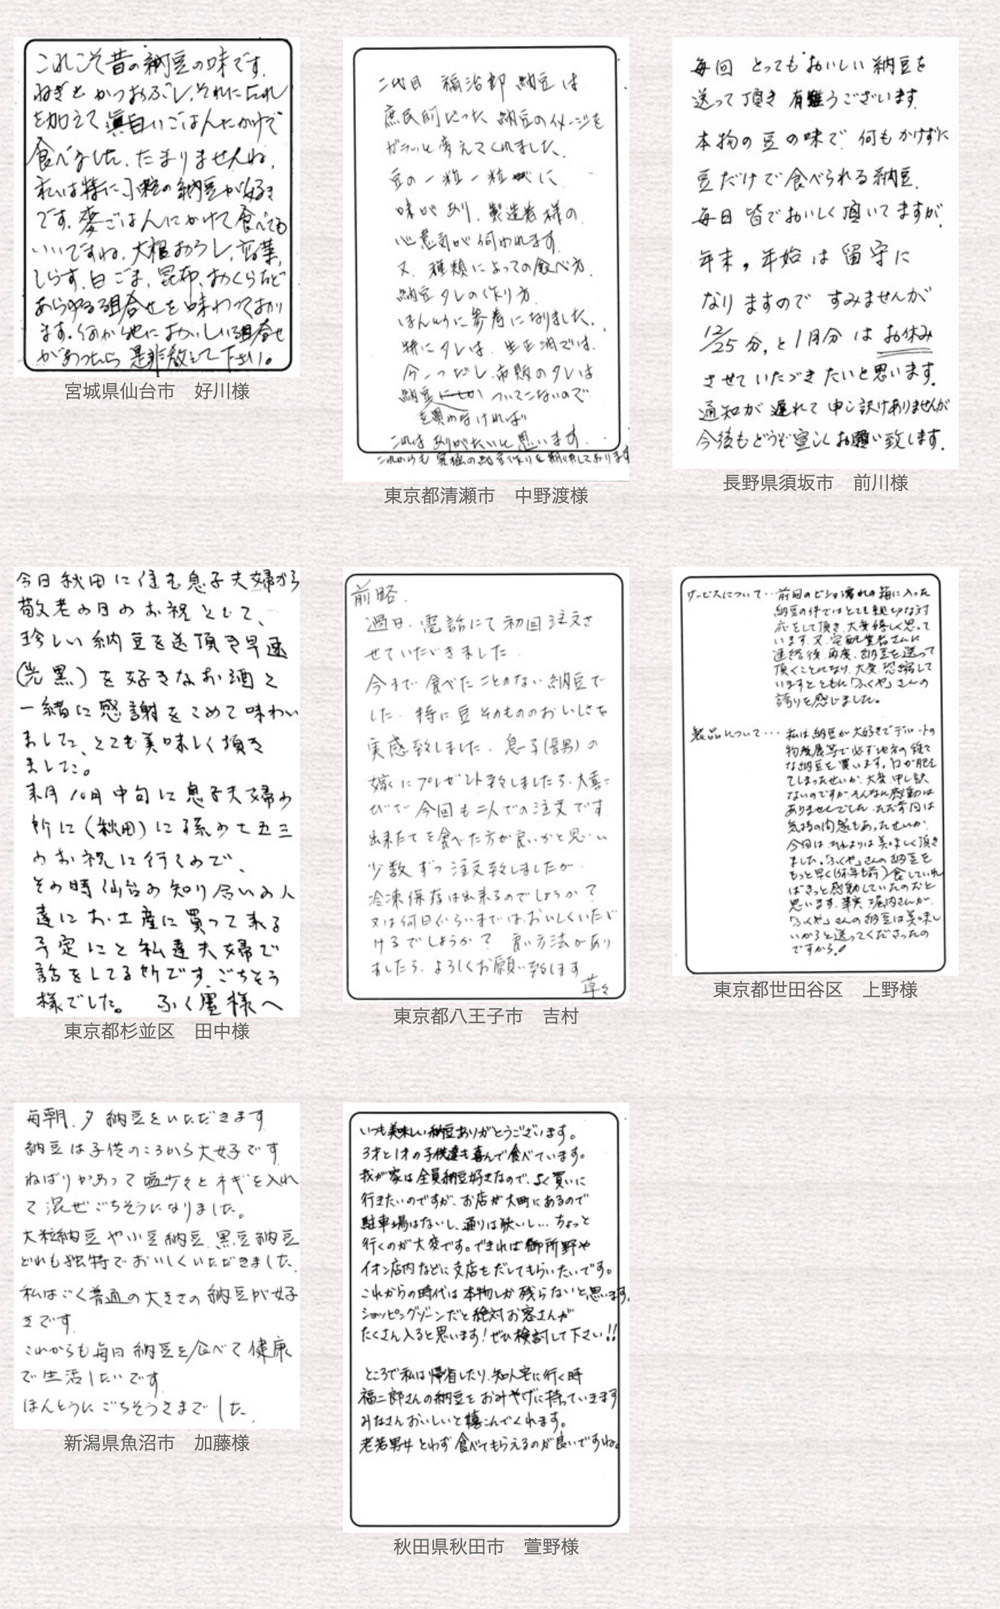 これこそ昔の納豆の味です。
ねぎとかつおぶし、それにたれ
を加えて眞白いごはんにかけて
食べました、たまりませんね、
私は特に小粒の納豆が好き
です。麦ごはんにかけて食べても
いいですね。大根おろし、
しらす、白ごま、昆布、おくらなど
あらゆる組合せを味わっており
ます。何か他においしい組合せ
があったら是非教えて下さい。
宮城県仙台市 好川様
二代目 福治郎 納豆は
庶民的だった納豆のイメージを
ガラッと変えてくれました。
豆の一粒一粒に
味があり、製造者様の
心意気が伺われます。
又、種類によっての食べ方、
納豆タレの作り方、
ほんとうに参考になりました。
特にタレは、生醤油では、
今一つだし、市販のタレは
納豆 ついてこないので
を買わなければ
これはありがたいと思います。
これからも 究極の納豆作りを期待しております
東京都清瀬市 中野渡様
毎回 とってもおいしい納豆を
送って頂き 有難うございます。
本物の豆の味で 何もかけずに
豆だけで食べられる納豆。
毎日 皆でおいしく頂いてますが、
年末、年始は留守に
なりますので すみませんが
12/25分、と1月分は お休み
させていただきたいと思います。
通知が遅れて申し訳けありませんが
今後もどうぞ宜しくお願い致します。
長野県須坂市 前川様
今日秋田に住む息子夫婦から
敬老の日のお祝として、
珍しい納豆を送頂き早速
(光黒)を好きなお酒と
一緒に感謝をこめて味わい
ました、とても美味しく頂き
ました。
来月10月中旬に息子夫婦の
所に(秋田)に孫の七五三
のお祝に行くので、
その時仙台の知り合いの人
達にお土産に買って来る
予定にと私達夫婦で
話をしてる所です。ごちそう
様でした。 ふく屋様へ
東京都杉並区 田中様
前略、
過日、電話にて初回注文さ
せていただきました。
今まで食べたことのない納豆で
した。特に豆そのもののおいしさを
実感致しました。息子(長男)の
嫁にプレゼント致しましたら、大喜
びで今回も二人での注文です
出来たてを食べた方が良いかと思い
少数ずつ注文致しましたが
冷凍保存は出来るのでしょうか?
又は何日ぐらいまではおいしくいただ
けるでしょうか? 良い方法があり
ましたら、よろしくお願い致します
草々
東京都八王子市 吉村
サービスについて…前回のビショ濡れの箱に入った
納豆の件ではとても親切な対
応をして頂き大変嬉しく思って
います。又、宅配業者さんに
連絡後、再度、納豆を送って
頂くことになり、大変、恐縮して
いますとともに「ふくや」さんの
誇りを感じました。
製品について…私は納豆が大好きでデパートの
物産展等で必ず地方の色々
な納豆を買います。口が肥え
てしまったせいか、大変、申し訳
ないのですがそんなに感動は
ありませんでした。ただ前回は
気持の問題もあったせいか、
今回は、それよりは美味しく頂き
ました。「ふくや」さんの納豆を
もっと早く(5、6年前)食していれ
ばきっと感動していたのだと
思います。事実、堀内さんが、
「ふくや」さんの納豆は美味し
いからと送ってくださったの
ですから!
東京都世田谷区 上野様
毎朝、夕 納豆をいただきます
納豆は子供のころから大好です
ねばりがあって塩少々とネギを入れ
て混ぜごちそうになりました。
大粒納豆や小豆納豆、黒豆納豆
どれも独特でおいしくいただきました、
私はごく普通の大きさの納豆が好
きです
これからも毎日納豆を食べて健康
で生活したいです
ほんとうにごちそうさまでした。
新潟県魚沼市 加藤様
いつも美味しい納豆ありがとうございます。
3才と1才の子供達も喜んで食べています。
我が家は全員納豆好きなので、よく買いに
行きたいのですが、お店が大町にあるので
駐車場はないし、通りは狭いし… ちょっと
行くのが大変です。できれば御所野や
イオン店内などに支店をだしてもらいたいです。
これからの時代は本物しか残らないと思います。
ショッピングゾーンだと絶対お客さんが
たくさん入ると思います!ぜひ検討して下さい!!
ところで私は帰省したり、知人宅に行く時
福二郎さんの納豆をおみやげに持っていきます
みなさんおいしいと喜こんでくれます。
老若男女とわず食べてもらえるのが良いですね。
秋田県秋田市 萱野様